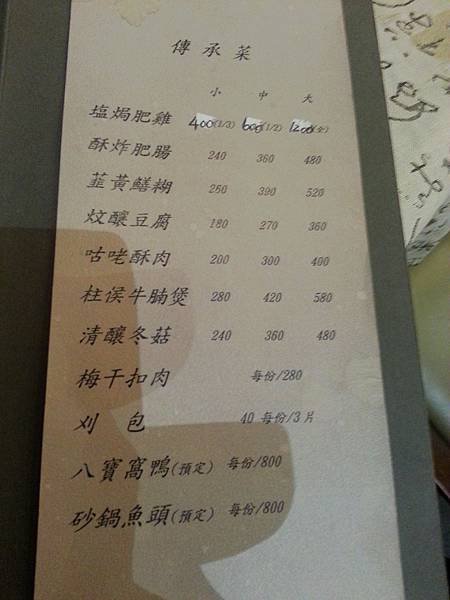 傳承菜
小 中 大
塩焗肥雞 400(1/3) 600(1/2) 1200(全)
酥炸肥腸 240 360 480
韮黃鱔糊 260 390 520
炆釀豆腐 180 270 360
咕咾酥肉 200 300 400
柱侯牛腩煲 280 420 580
清釀冬菇 240 360 480
梅干扣肉 每份/280
刈包 40 每份/3片
八寶窩鴨(預定) 每份/800
砂鍋魚頭(預定) 每份/800